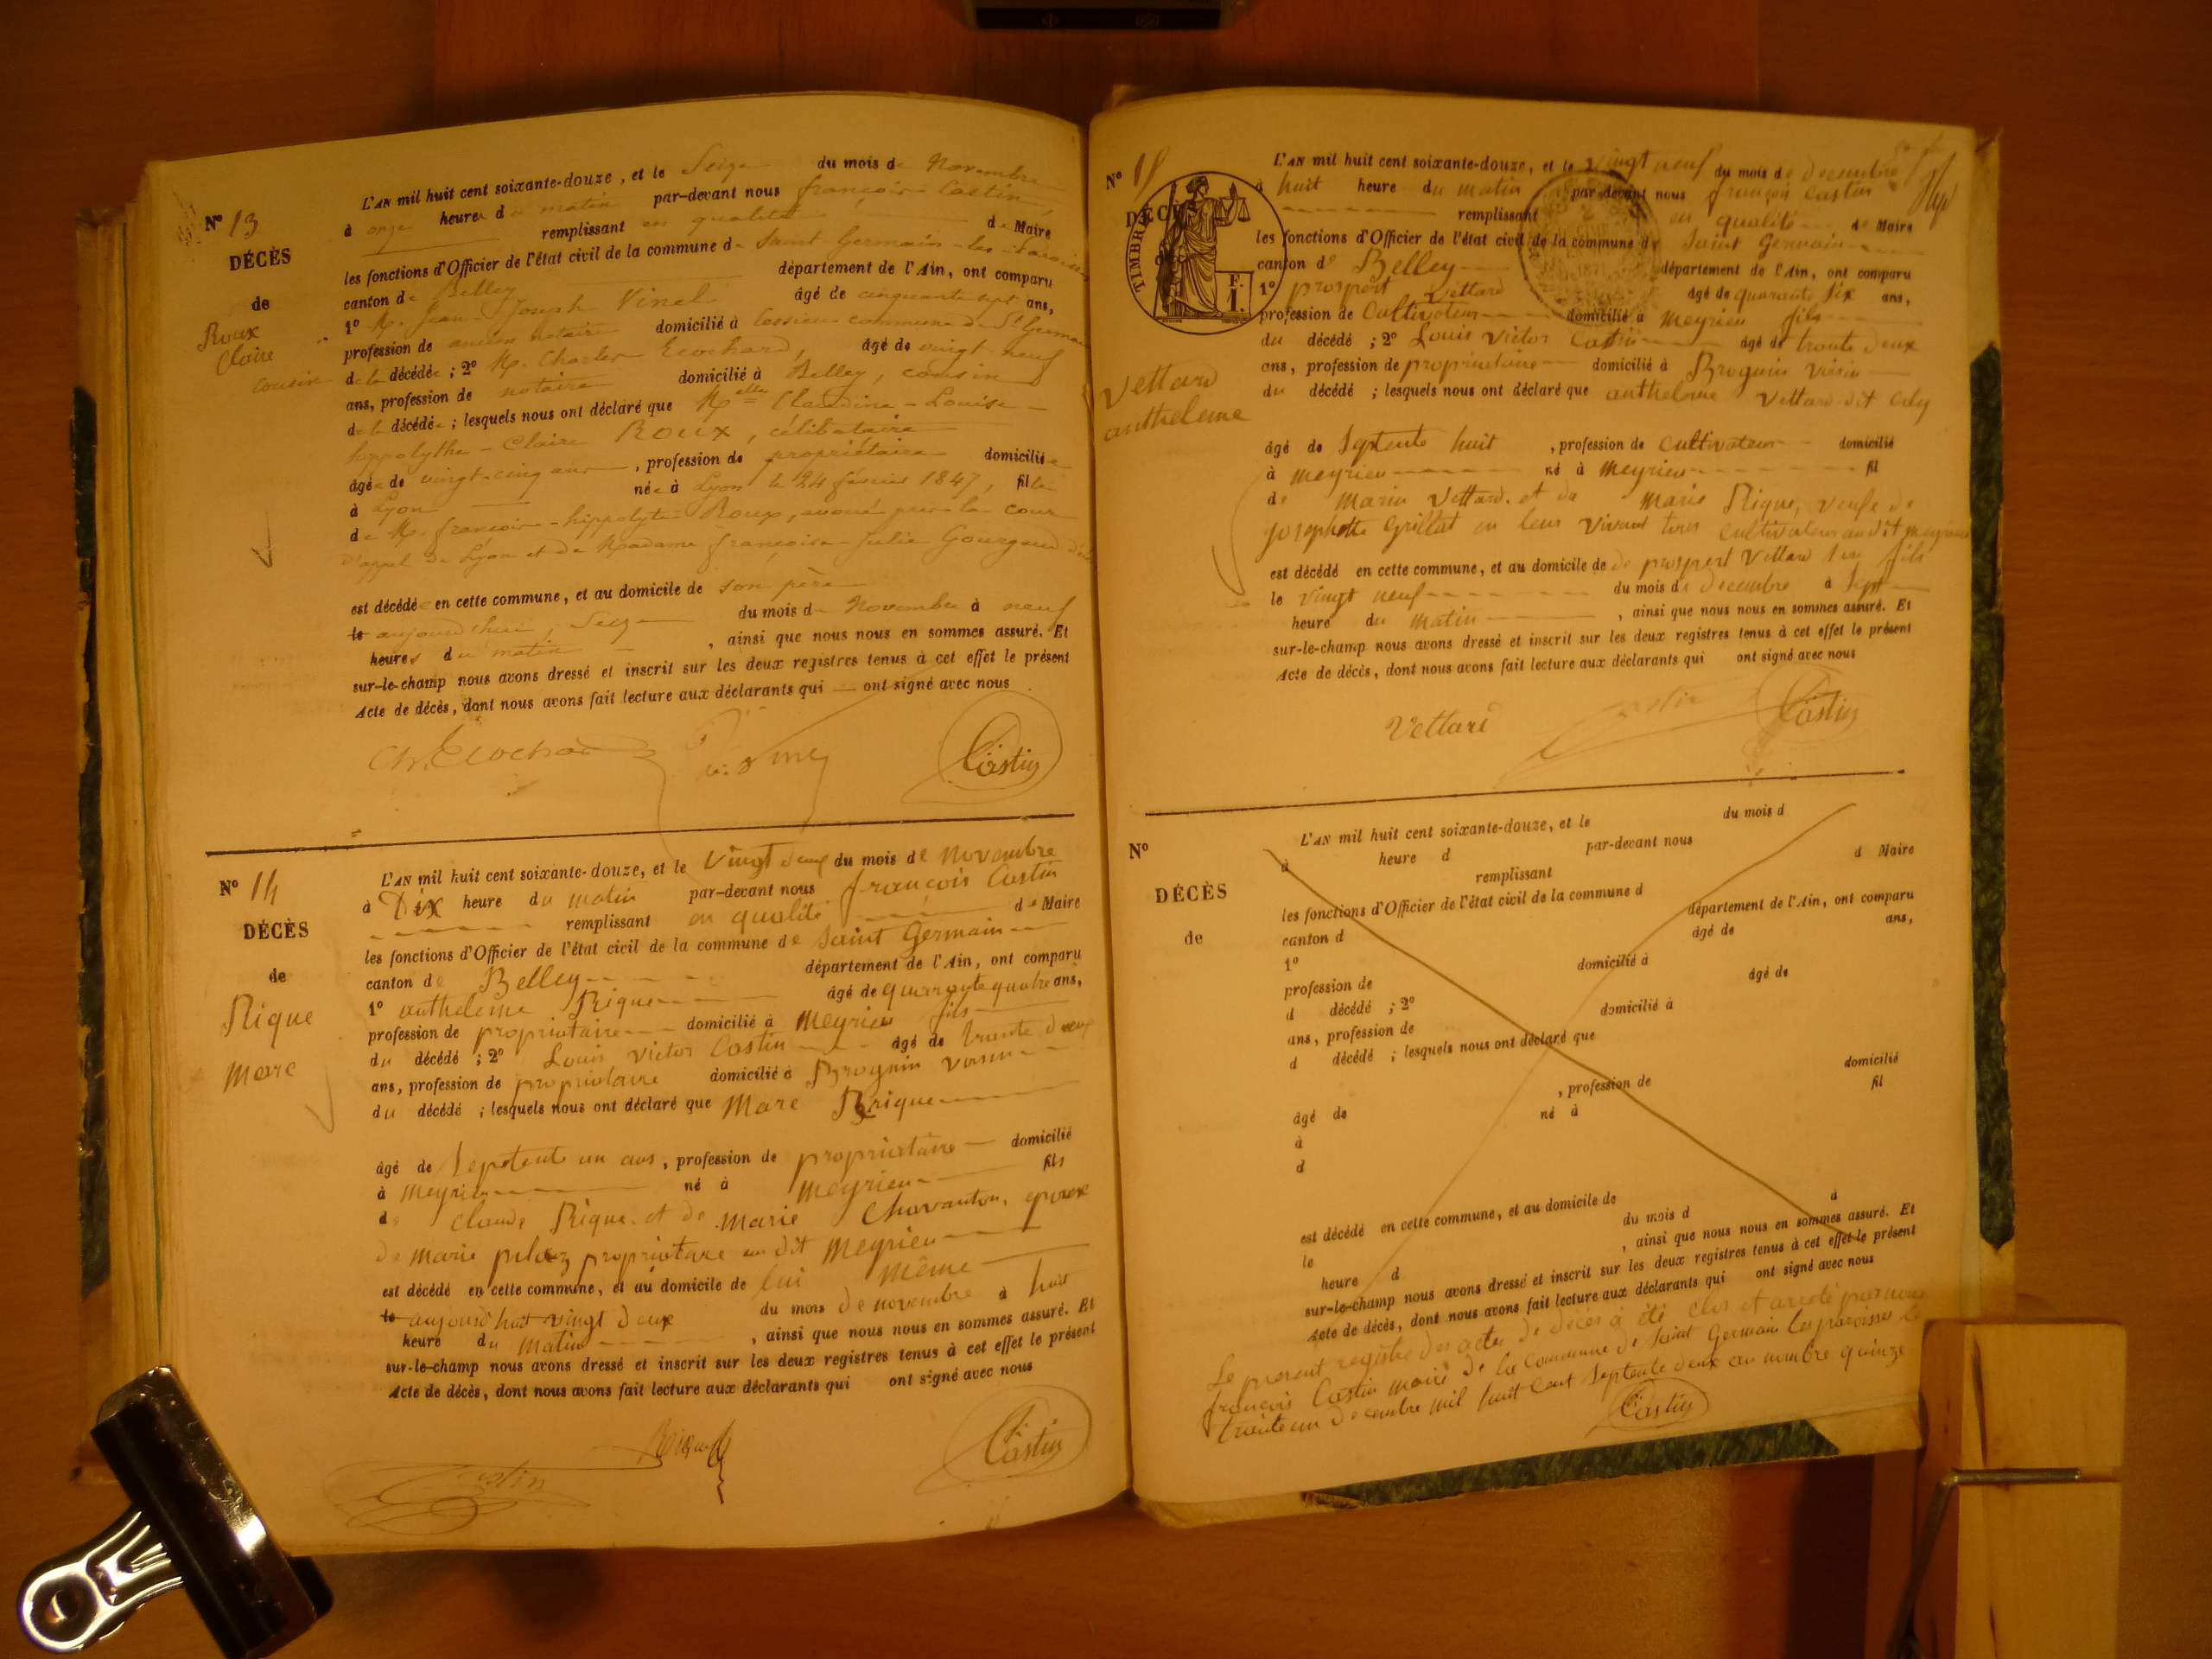 N° 13
DÉCÈS
de
Roux
Claire
cousin
L'AN mil huit cent soixante-douze, et le Seize du mois de Novembre
à onze heures du matin par-devant nous françois Castin,
remplissant en qualité de Maire
les fonctions d'Officier de l'état civil de la commune de Saint Germain-les-Paroisses
canton de Belley département de l'Ain, ont comparu
1° M. Jean Joseph Vinel âgé de cinquante sept ans,
profession de ancien notaire domicilié à commune de St Germain
de la décédée ; 2° M. Charles Ecochard, âgé de vingt neuf
ans, profession de notaire domicilié à Belley, cousin
de la décédée ; lesquels nous ont déclaré que Melle Claudine-Louise-
hippolythe-Claire Roux, célibataire
âgée de vingt-cinq ans, profession de propriétaire domiciliée
à Lyon née à Lyon le 24 février 1847, fille
de M. françois-hippolyte Roux, avoué près la cour
d'appel de Lyon et de Madame françoise-Julie Gourgaud
est décédée en cette commune, et au domicile de son père
le aujourd'hui, Seize du mois de Novembre à neuf
heures du matin, ainsi que nous nous en sommes assuré. Et
sur-le-champ nous avons dressé et inscrit sur les deux registres tenus à cet effet le présent
Acte de décès, dont nous avons fait lecture aux déclarants qui — ont signé avec nous
Ch. Ecochard Castin
N° 14
DÉCÈS
de
Rique
Marc
L'AN mil huit cent soixante-douze, et le Vingt deux du mois de novembre
à Dix heure du matin par-devant nous françois Castin
remplissant en qualité de Maire
les fonctions d'Officier de l'état civil de la commune de Saint Germain
canton de Belley département de l'Ain, ont comparu
1° anthelme Rique âgé de quarante quatre ans,
profession de propriétaire domicilié à Meyrieu fils
du décédé ; 2° Louis Victor Castin âgé de trente deux
ans, profession de propriétaire domicilié à Brognin voisin
du décédé ; lesquels nous ont déclaré que Marc Rique
âgé de septente un ans, profession de propriétaire domicilié
à Meyrieu né à Meyrieu fils
de Claude Rique et de marie Chavanton, epoux
de marie propriétaire au dit Meyrieu
est décédé en cette commune, et au domicile de lui même
le aujourd'huit vingt deux du mois de novembre à huit
heure du matin, ainsi que nous nous en sommes assuré. Et
sur-le-champ nous avons dressé et inscrit sur les deux registres tenus à cet effet le présent
Acte de décès, dont nous avons fait lecture aux déclarants qui ont signé avec nous
Castin Castin
N° 15
DÉCÈS
TIMBRE
F.
1.
Vettard
anthelme
L'AN mil huit cent soixante-douze, et le vingt neuf du mois de decembre
à huit heure du matin par-devant nous françois Castin
remplissant en qualité de Maire
les fonctions d'Officier de l'état civil de la commune de Saint Germain
canton de Belley département de l'Ain, ont comparu
1° prospert Vettard âgé de quarante six ans,
profession de Cultivateur domicilié à Meyrieu fils
du décédé ; 2° Louis Victor Castin âgé de trente deux
ans, profession de propriétaire domicilié à Brognin voisin
du décédé ; lesquels nous ont déclaré que anthelme Vettard dit
âgé de septente huit, profession de Cultivateur domicilié
à Meyrieu né à Meyrieu fil
de Marin Vettard et de Marie Rique, veufe de
josephette Grillat en leur vivant tous cultivateur au dit Meyrieu
est décédé en cette commune, et au domicile de de prospert Vettard fils
le vingt neuf du mois de decembre à sept
heure du matin, ainsi que nous nous en sommes assuré. Et
sur-le-champ nous avons dressé et inscrit sur les deux registres tenus à cet effet le présent
Acte de décès, dont nous avons fait lecture aux déclarants qui ont signé avec nous
Vettard Castin Castin
N°
DÉCÈS
de
L'AN mil huit cent soixante-douze, et le du mois d
à heure d par-devant nous
remplissant d Maire
les fonctions d'Officier de l'état civil de la commune d
canton d département de l'Ain, ont comparu
1° âgé de ans,
profession de domicilié à
d décédé ; 2° âgé de
ans, profession de domicilié à
d décédé ; lesquels nous ont déclaré que
âgé de , profession de domicilié
à né à fil
d
est décédé en cette commune, et au domicile de
le du mois d à
heure d , ainsi que nous nous en sommes assuré. Et
sur-le-champ nous avons dressé et inscrit sur les deux registres tenus à cet effet le présent
Acte de décès, dont nous avons fait lecture aux déclarants qui ont signé avec nous
Le present registre des actes de décès à été clos et areté par nous
françois Castin maire de la commune de Saint Germain les paroisses le
trente un decembre mil huit cent septente deux au nombre quinze
Castin